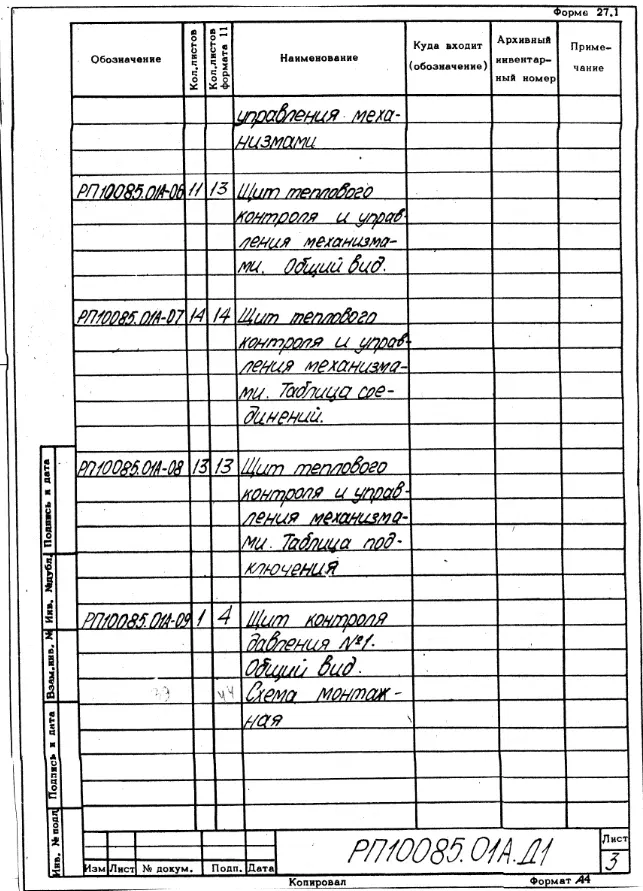 Форма 27.1
Обозначение
Кол.листов
Кол.листов формата 11
Наименование
Куда входит (обозначение)
Архивный инвентарный номер
Примечание
управления меха-
низмами
РП10085.01А-06 11 13 Щит теплового
контроля и управ-
ления механизма-
ми. Общий вид.
РП10085.01А-07 14 14 Щит теплового
контроля и управ-
ления механизма-
ми. Таблица сое-
динений.
РП10085.01А-08 13 13 Щит теплового
контроля и управ-
ления механизма-
ми. Таблица под-
ключения
РП10085.01А-09 1 4 Щит контроля
давления №1.
Общий вид.
44 Схема монтаж-
ная
Инв. № подл.
Подпись и дата
Взам.инв. №
Инв. №дубл.
Подпись и дата
Изм Лист № докум. Подп. Дата
РП10085.01А.Д1
Лист
3
Копировал
Формат А4